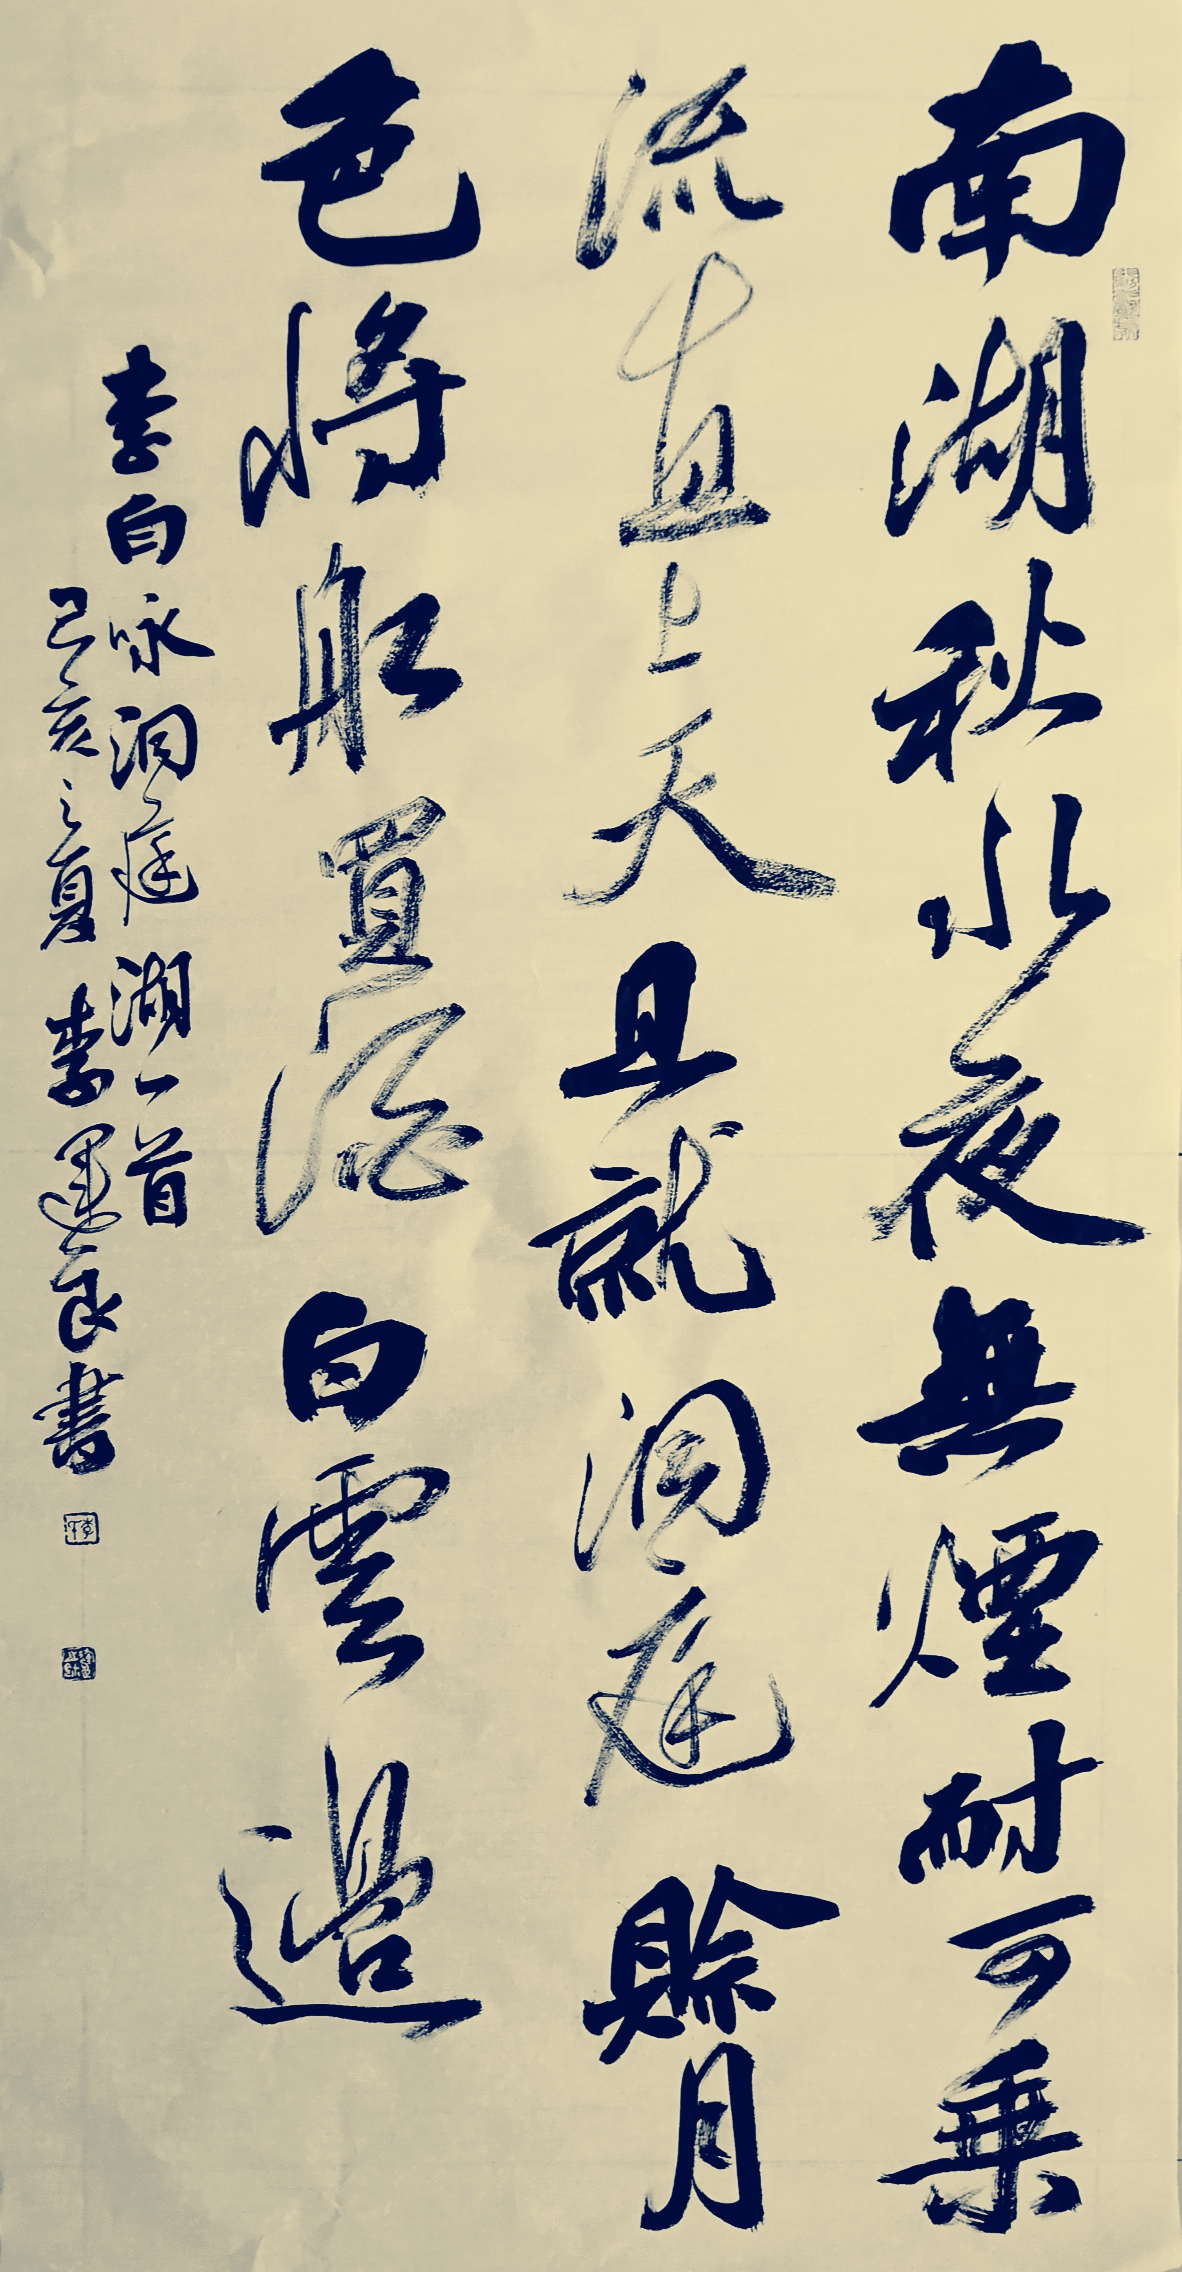 南湖秋水夜無煙耐可乗
流直上天且就洞庭賖月
色将船買酒白雲邉
李白咏洞庭湖一首
己亥之夏李運良書